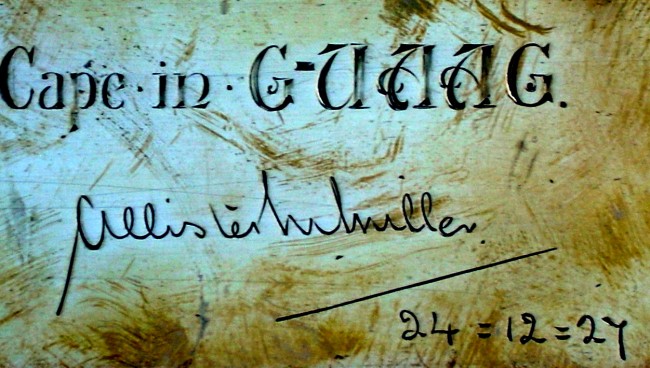 Cape·in·G-UAAG.
Allister M Miller
24=12=27